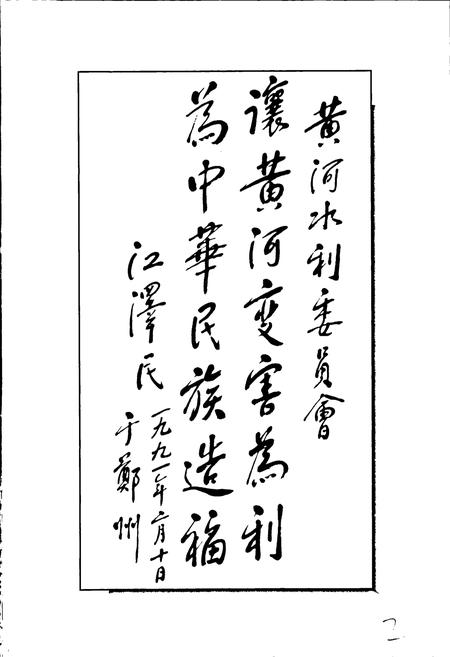 黄河水利委員會
讓黄河变害為利
為中華民族造福
江澤民
一九九一年二月十日
于鄭州